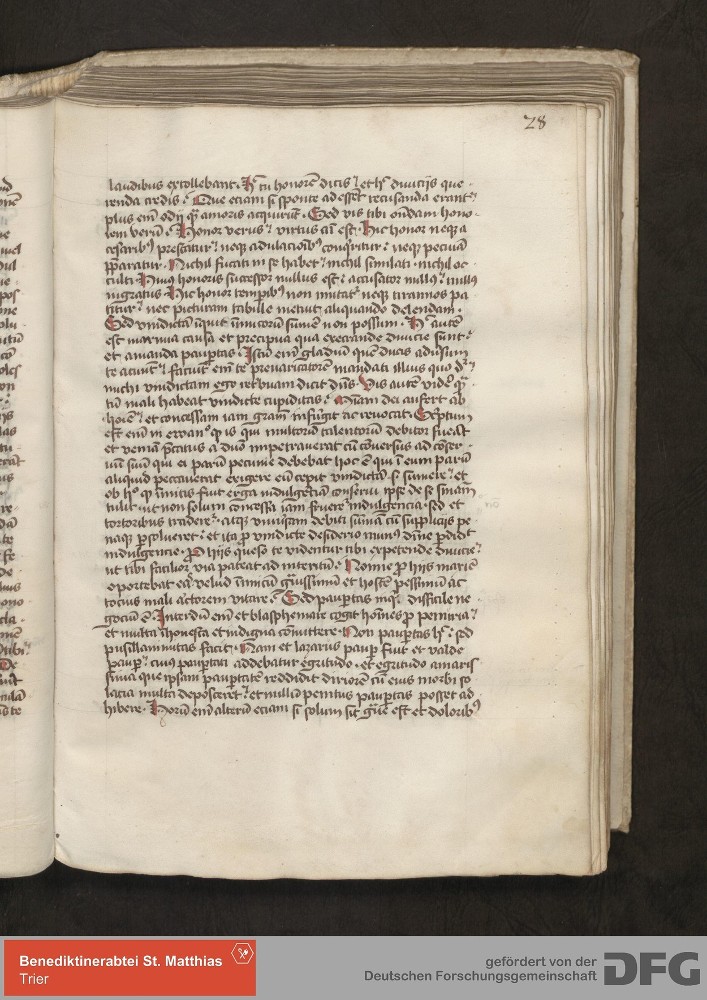 28
laudibus extollebant. Hec tu honorē dicis? et hec diuicijs que-
renda credis? Que eciam si sponte adessēt recusanda erant?
plus enī odij qua amoris acquirūt. Sed vis tibi ondam hono-
rem verū? Honor verus? virtus aī est. Hic honor neque a
cesaribus prestatur? neque adulacionibus conquiritur? neque pecuia
prparatur. Nichil fucati in se habet? nichil similati. nichil oc-
culti. Huius honoris successor nullus est? accusator nullus? nullus
ingratus. Hic honor temporibus non mutatr neque tirannos pa
titur? nec picturam tabule metuit aliquando delendam.
Sed vindictā inquit inimicorū sumere non possum. Hec autē
est maxima causa et precipua qua execrande diuicie sunt?
et amanda paupertas. Istū enī gladiū quē ducis aduersum
te acuunt? et faciūt enī te preuaricatorē mandati illius quo dr?
michi vindictam ego retribuam dicit dns. Vis autē videre qua
tū mali habeat vindicte cupiditas? Misam dei aufert ab
hoīe? et concessam iam gram infrigit ac reuocat. Scriptum
est enī in ewanlo qz is qui multorū talentorū debitor fuerat
et veniā pcatus a dno impetrauerat cū conuersus ad conser-
uū suū qui ei parū pecunie debebat hoc ē qui ī eum parū
aliquid peccauerat exigere eū cepit vindictā si sumere? et
ob hec qz inmitis fuit erga indulgeciā conserui ipse de se sniam
tulit. ut non solum concessa iam frueretr indulgencia. sed et
tortoribus traderetr. atque vniuersam debiti sumā cū supplicijs pe-
naque persolueret? et ita pro vindicte desiderio munus diue perdidit
indulgencie. Pro hijs queso te videntur tibi expetende diuicie?
ut tibi facilior via pateat ad interitū? Nonne pro hijs maxie
oportebat eas velud inimicū grauissimū et hostē pessimū ac
tocius mali actorem vitare? Sed paupertas inqr difficile ne-
gociū ē. Interdū enī et blasphemare cogit hoīes pro penuria?
et multa īhonesta et indigna cōmittere. Non paupertas hec? sed
pusillanimitas facit. Nam et lazarus pauper fuit et valde
pauper? cuius paupertati addebatur egritudo. et egritudo amaris
sima que ipsam paupertatē reddidit diriorē cū eius morbi so-
lacia multa deposceret? et nullū penitus paupertas posset ad
hibere. Horū enī alterū eciam si solum sit graue est et doloribus
Benediktinerabtei St. Matthias
Trier
gefördert von der
Deutschen Forschungsgemeinschaft
DFG